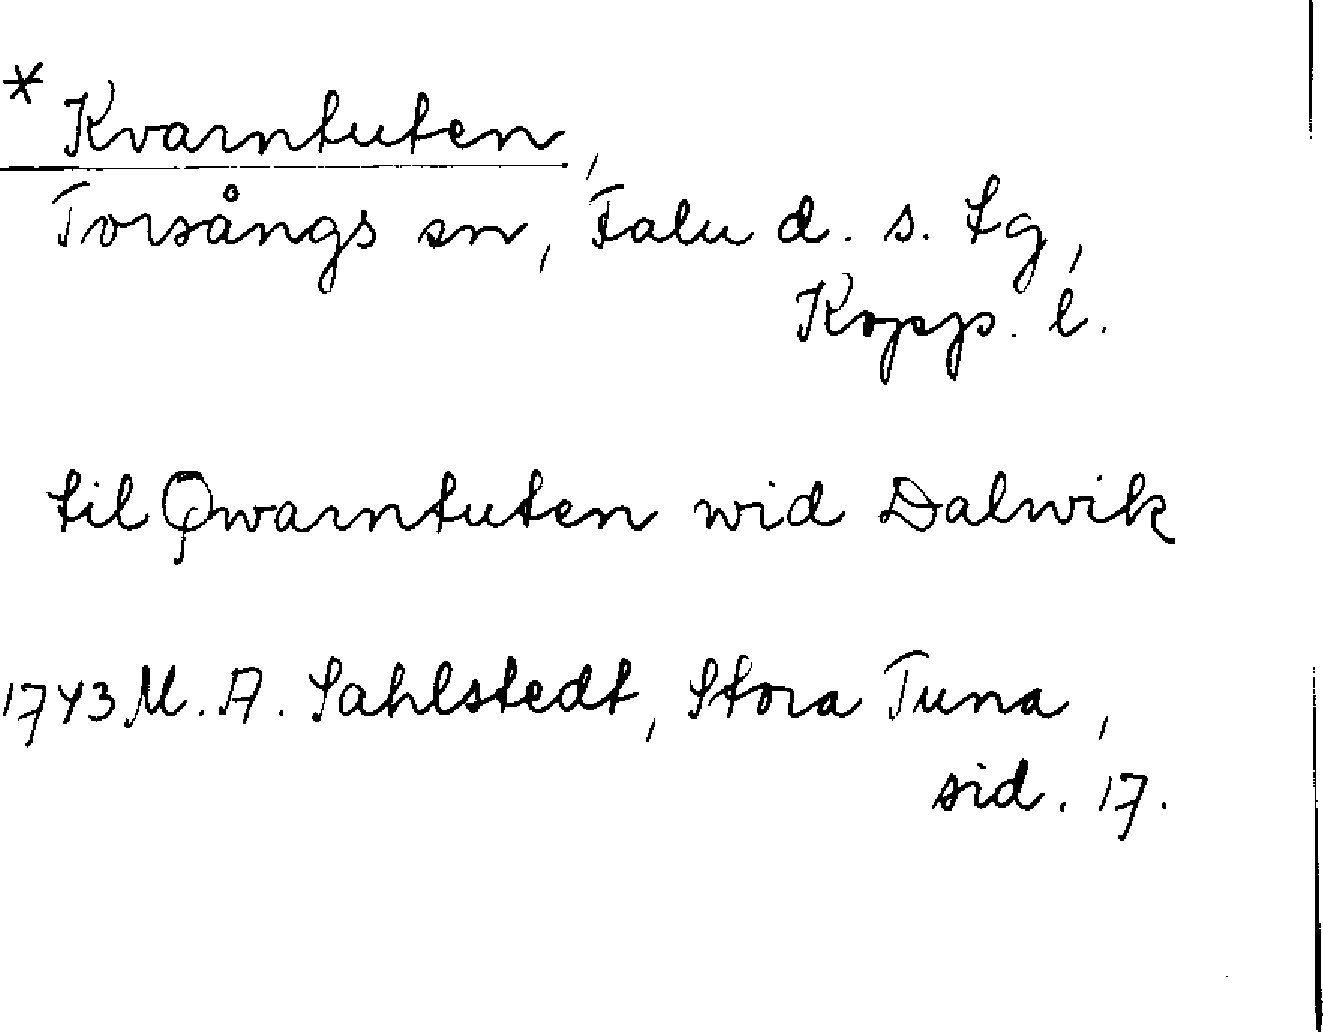 * Kvarntuten,
Torsångs sn, Falu d. s. tg,
Kopp. l.
til Qwarntuten wid Dalwik
1743 M. A. Sahlstedt, Stora Tuna,
sid. 17.